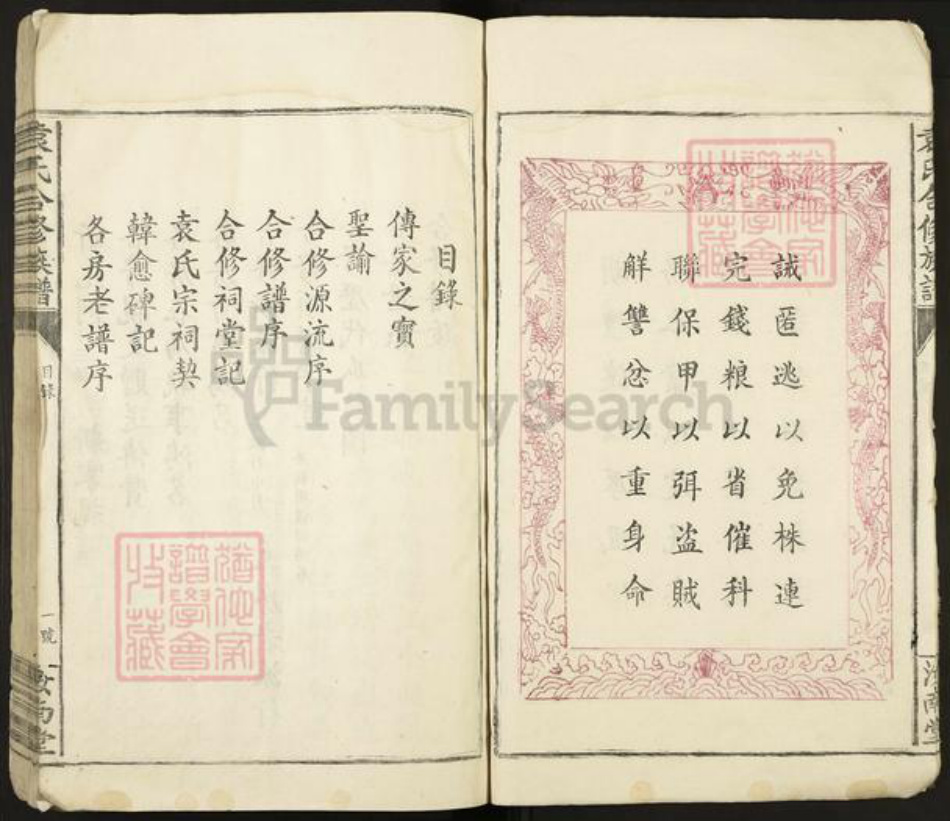 誡匿逃以免株連
完錢粮以省催科
聯保甲以弭盗賊
解讐忿以重身命
目錄
傳家之寳
聖諭
合修源流序
合修譜序
合修祠堂記
袁氏宗祠契
韓愈碑記
各房老譜序
袁氏合修族譜
目錄
一號
汝南堂
FamilySearch